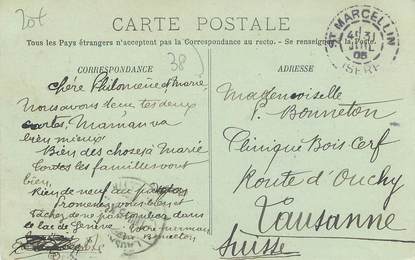 20f
CARTE POSTALE
Tous les Pays étrangers n'acceptent pas la Correspondance au recto. Se renseigner à la Poste.
CORRESPONDANCE
38
Chère Philomène et Marie,
Nous avons reçu tes deux
cartes, Maman va
bien mieux
Bien des choses à Marie
Toutes les familles vont
bien,
Rien de neuf au pays
promenez vous bien et
tâchez de ne pas tomber dans
le lac de Genève
Bonneton
ADRESSE
ST MARCELLIN
JUIL
05
ISÈRE
Mademoiselle
P. Bonneton
Clinique Bois Cerf
Route d'Ouchy
Lausanne
Suisse